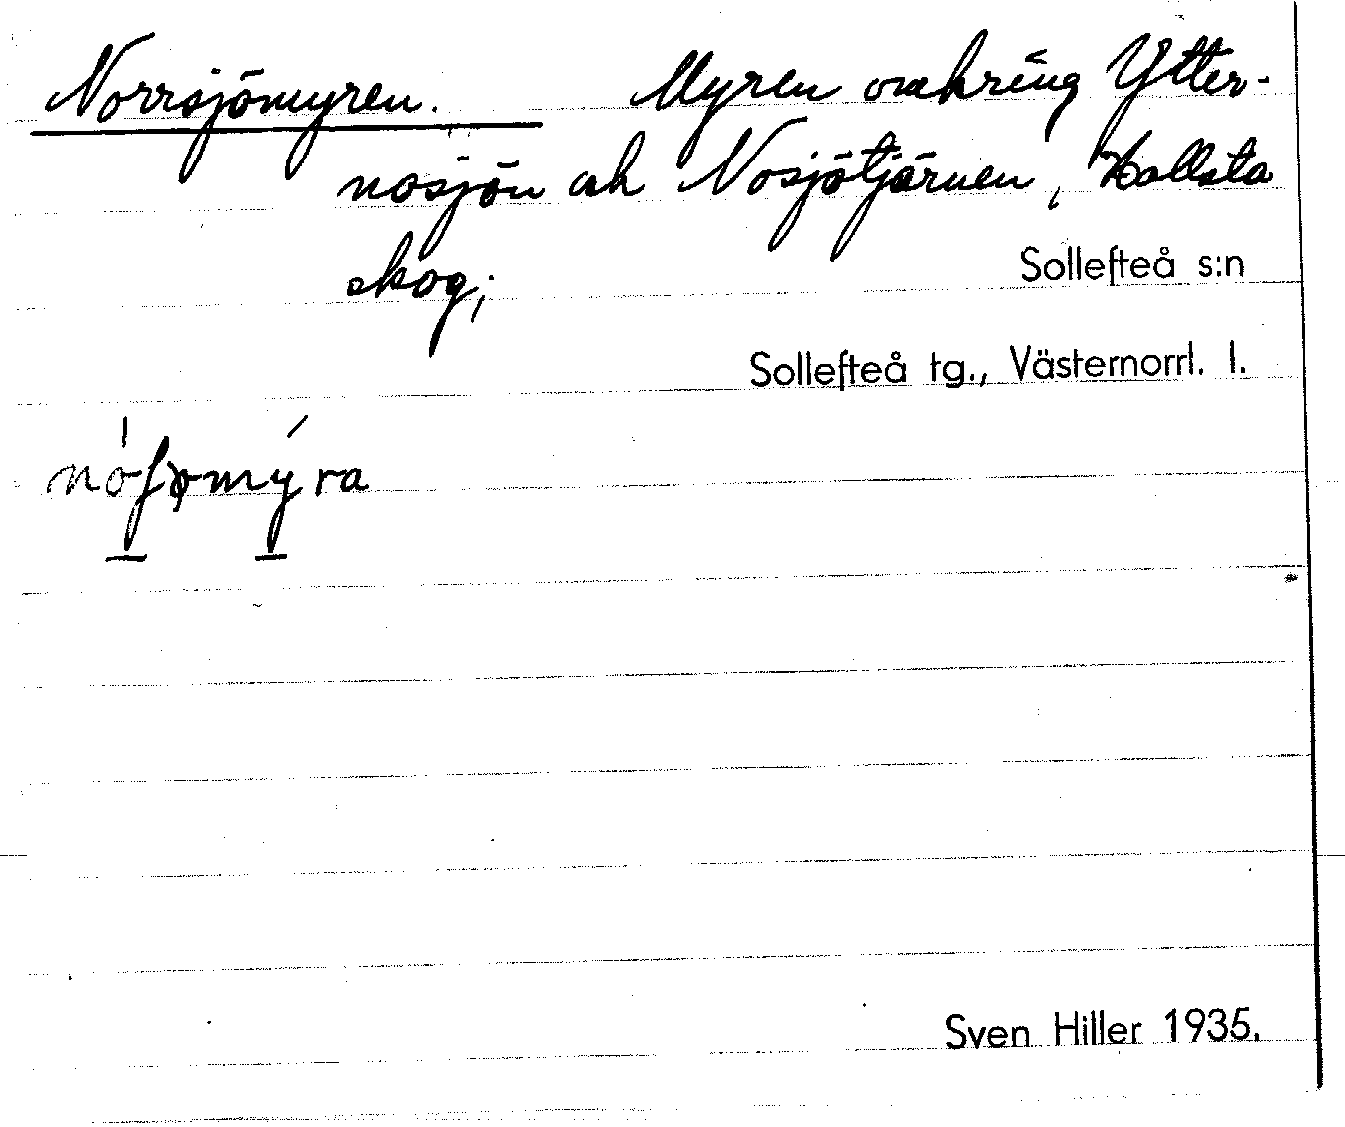 Norrsjömyren. Myren omkring Ytter-
nosjön och Nosjötjärnen, Hallsta
skog;
Sollefteå s:n
Sollefteå tg., Västernorrl. l.
Sven Hiller 1935.